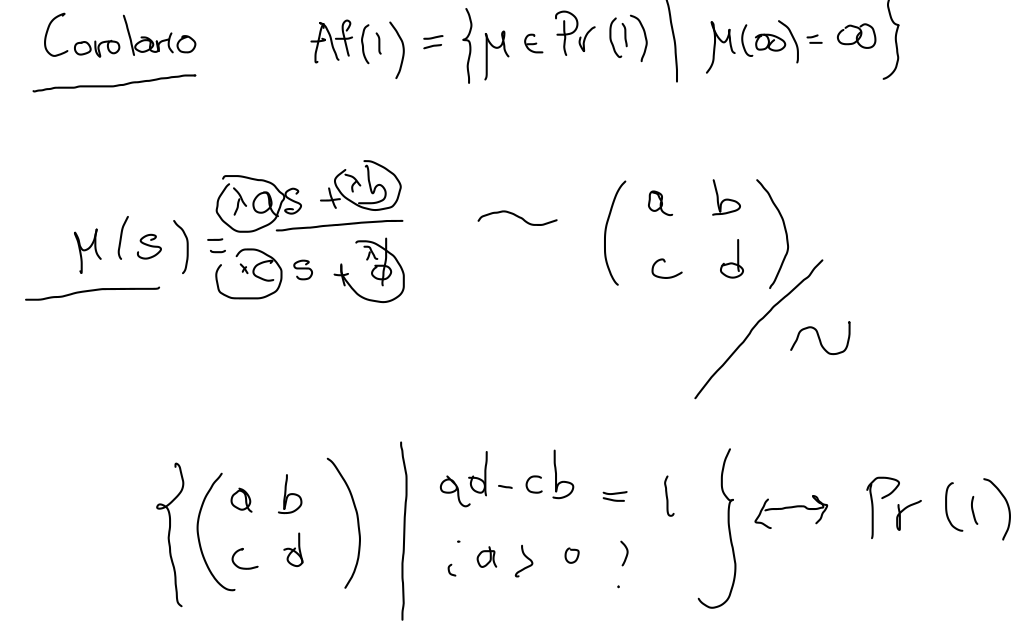 Corolario Af(1) = {μ ∈ Pr(1) | μ(∞) = ∞}
μ(s) = (λas + λb) / (λcs + λd) ~ (a b; c d) / ~
{(a b; c d) | ad - cb = 1 ¿a > 0?} ↔ Pr(1)